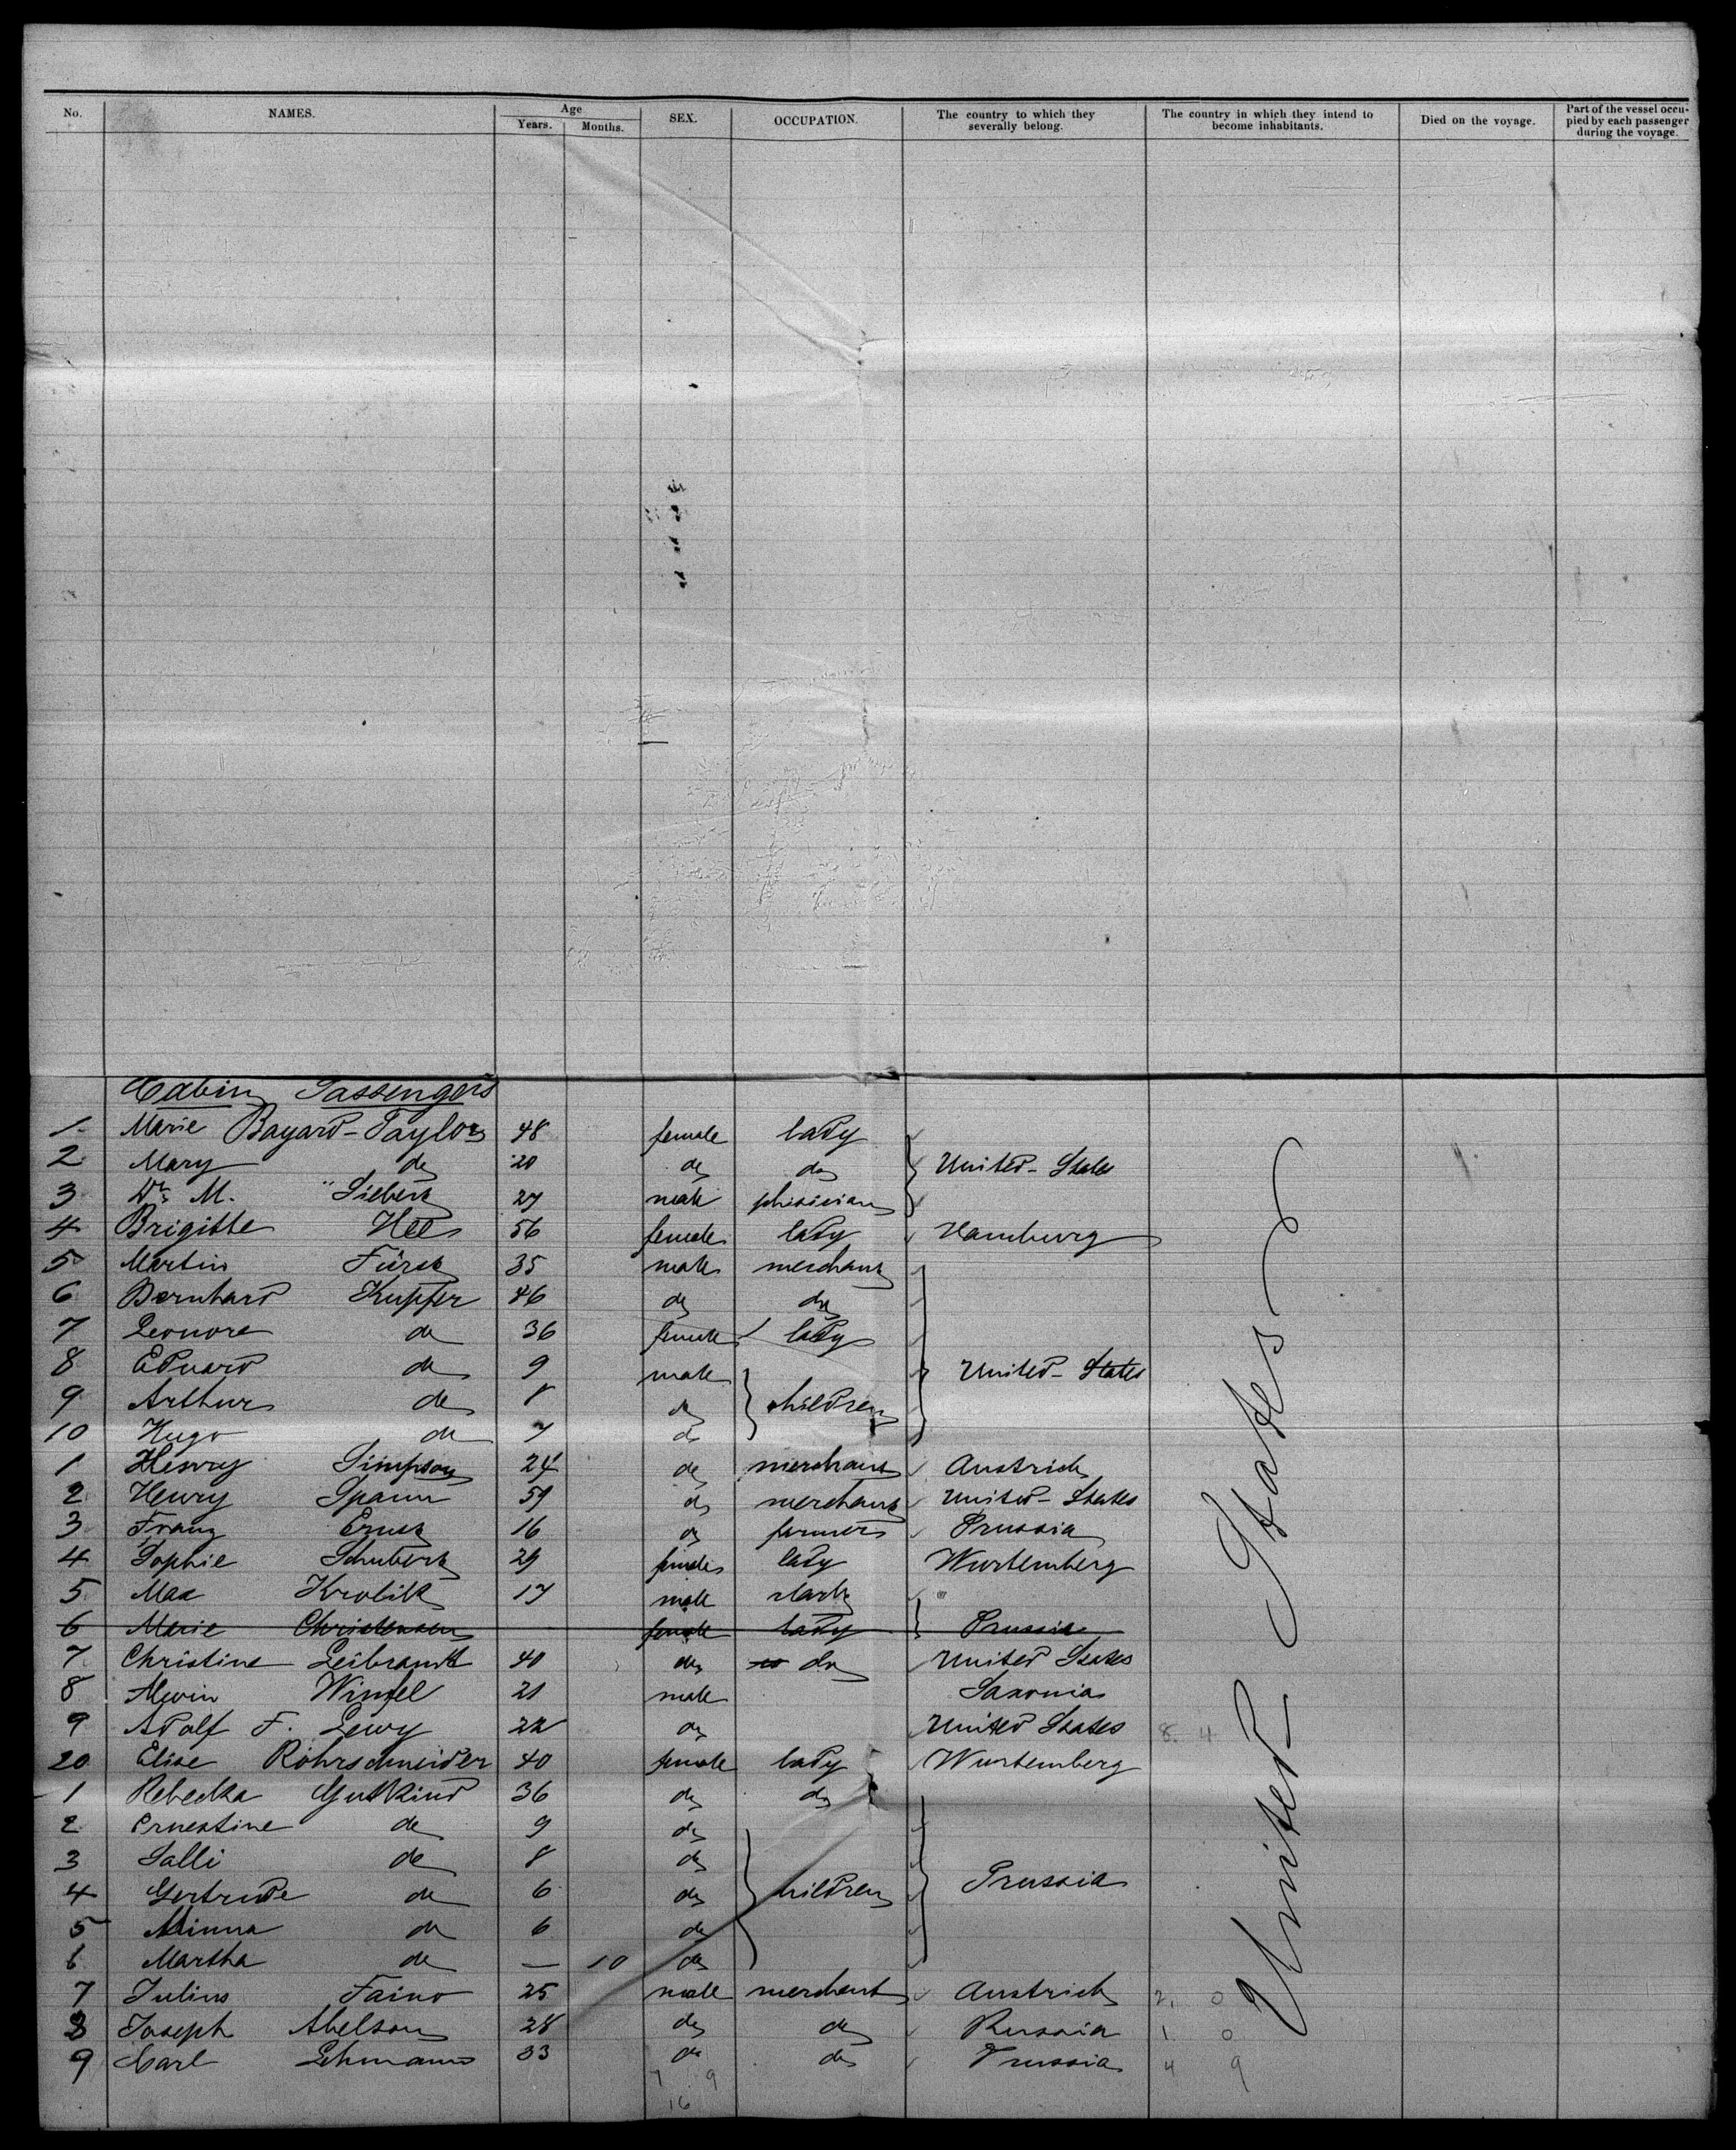 No. NAMES. Age Years. Months. SEX. OCCUPATION. The country to which they severally belong. The country in which they intend to become inhabitants. Died on the voyage. Part of the vessel occupied by each passenger during the voyage.
Cabin Passengers
1 Marie Bayard-Taylor 48 female lady
2 Mary do 20 do do United-States
3 Dr. M. Siebert 27 male phisician
4 Brigitte Hee 56 female lady Hamburg
5 Martin Fürst 35 male merchant
6 Bernhard Kupfer 46 do do
7 Leonore do 36 female lady
8 Eduard do 9 male United-States
9 Arthur do 8 do children
10 Hugo do 7 do
1 Henry Simpson 24 do merchant Austrich
2 Henry Spaun 59 do merchant United-States
3 Franz Ernst 16 do farmer Prussia
4 Sophie Schubert 29 female lady Wurtemberg
5 Max Krolik 17 male clark "
6 Marie Christensen female lady Prussia
7 Christine Leibrandt 40 do do United States
8 Alwin Winkel 21 male Saxonia
9 Adolf F. Lewy 22 do United States 8. 4.
20 Elise Röhrschneider 40 female lady Wurtemberg
1 Rebecka Gutkind 36 do do
2 Ernestine do 9 do
3 Salli do 8 do
4 Gertrude do 6 do children Prussia
5 Minna do 6 do
6 Martha do — 10 do
7 Julius 25 male merchant Austrich 2. 0
8 Joseph Abelson 28 do do Russia 1. 0
9 Carl Lehmann 33 do do Prussia 4 9
7 9
16
United States